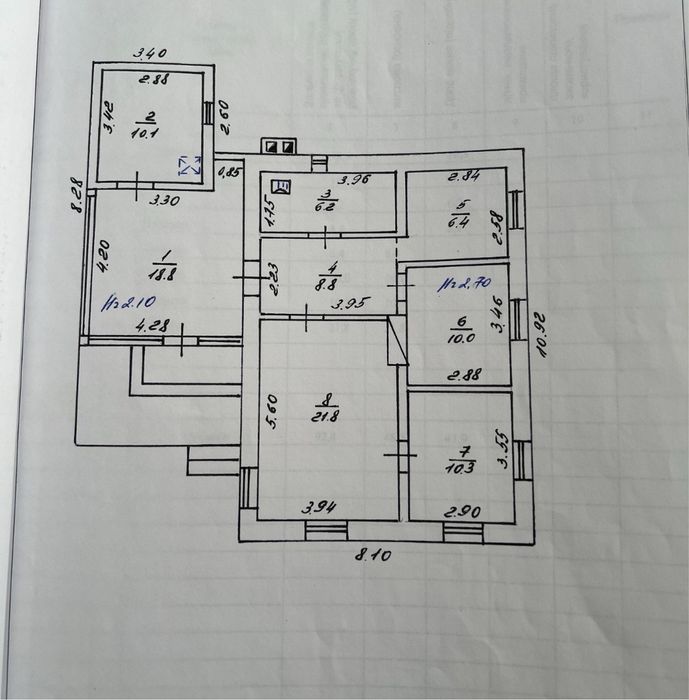 3.40
2.88
3.42
2
10.1
2.60
0,85
3.96
2.84
8.28
3.30
1.75
3
6.2
5
6.4
2.58
4.20
1
18.8
2.23
4
8.8
H=2.70
H=2.10
3.95
3.46
4.28
6
10.0
10.92
2.88
5.60
8
21.8
7
10.3
3.55
3.94
2.90
8.10